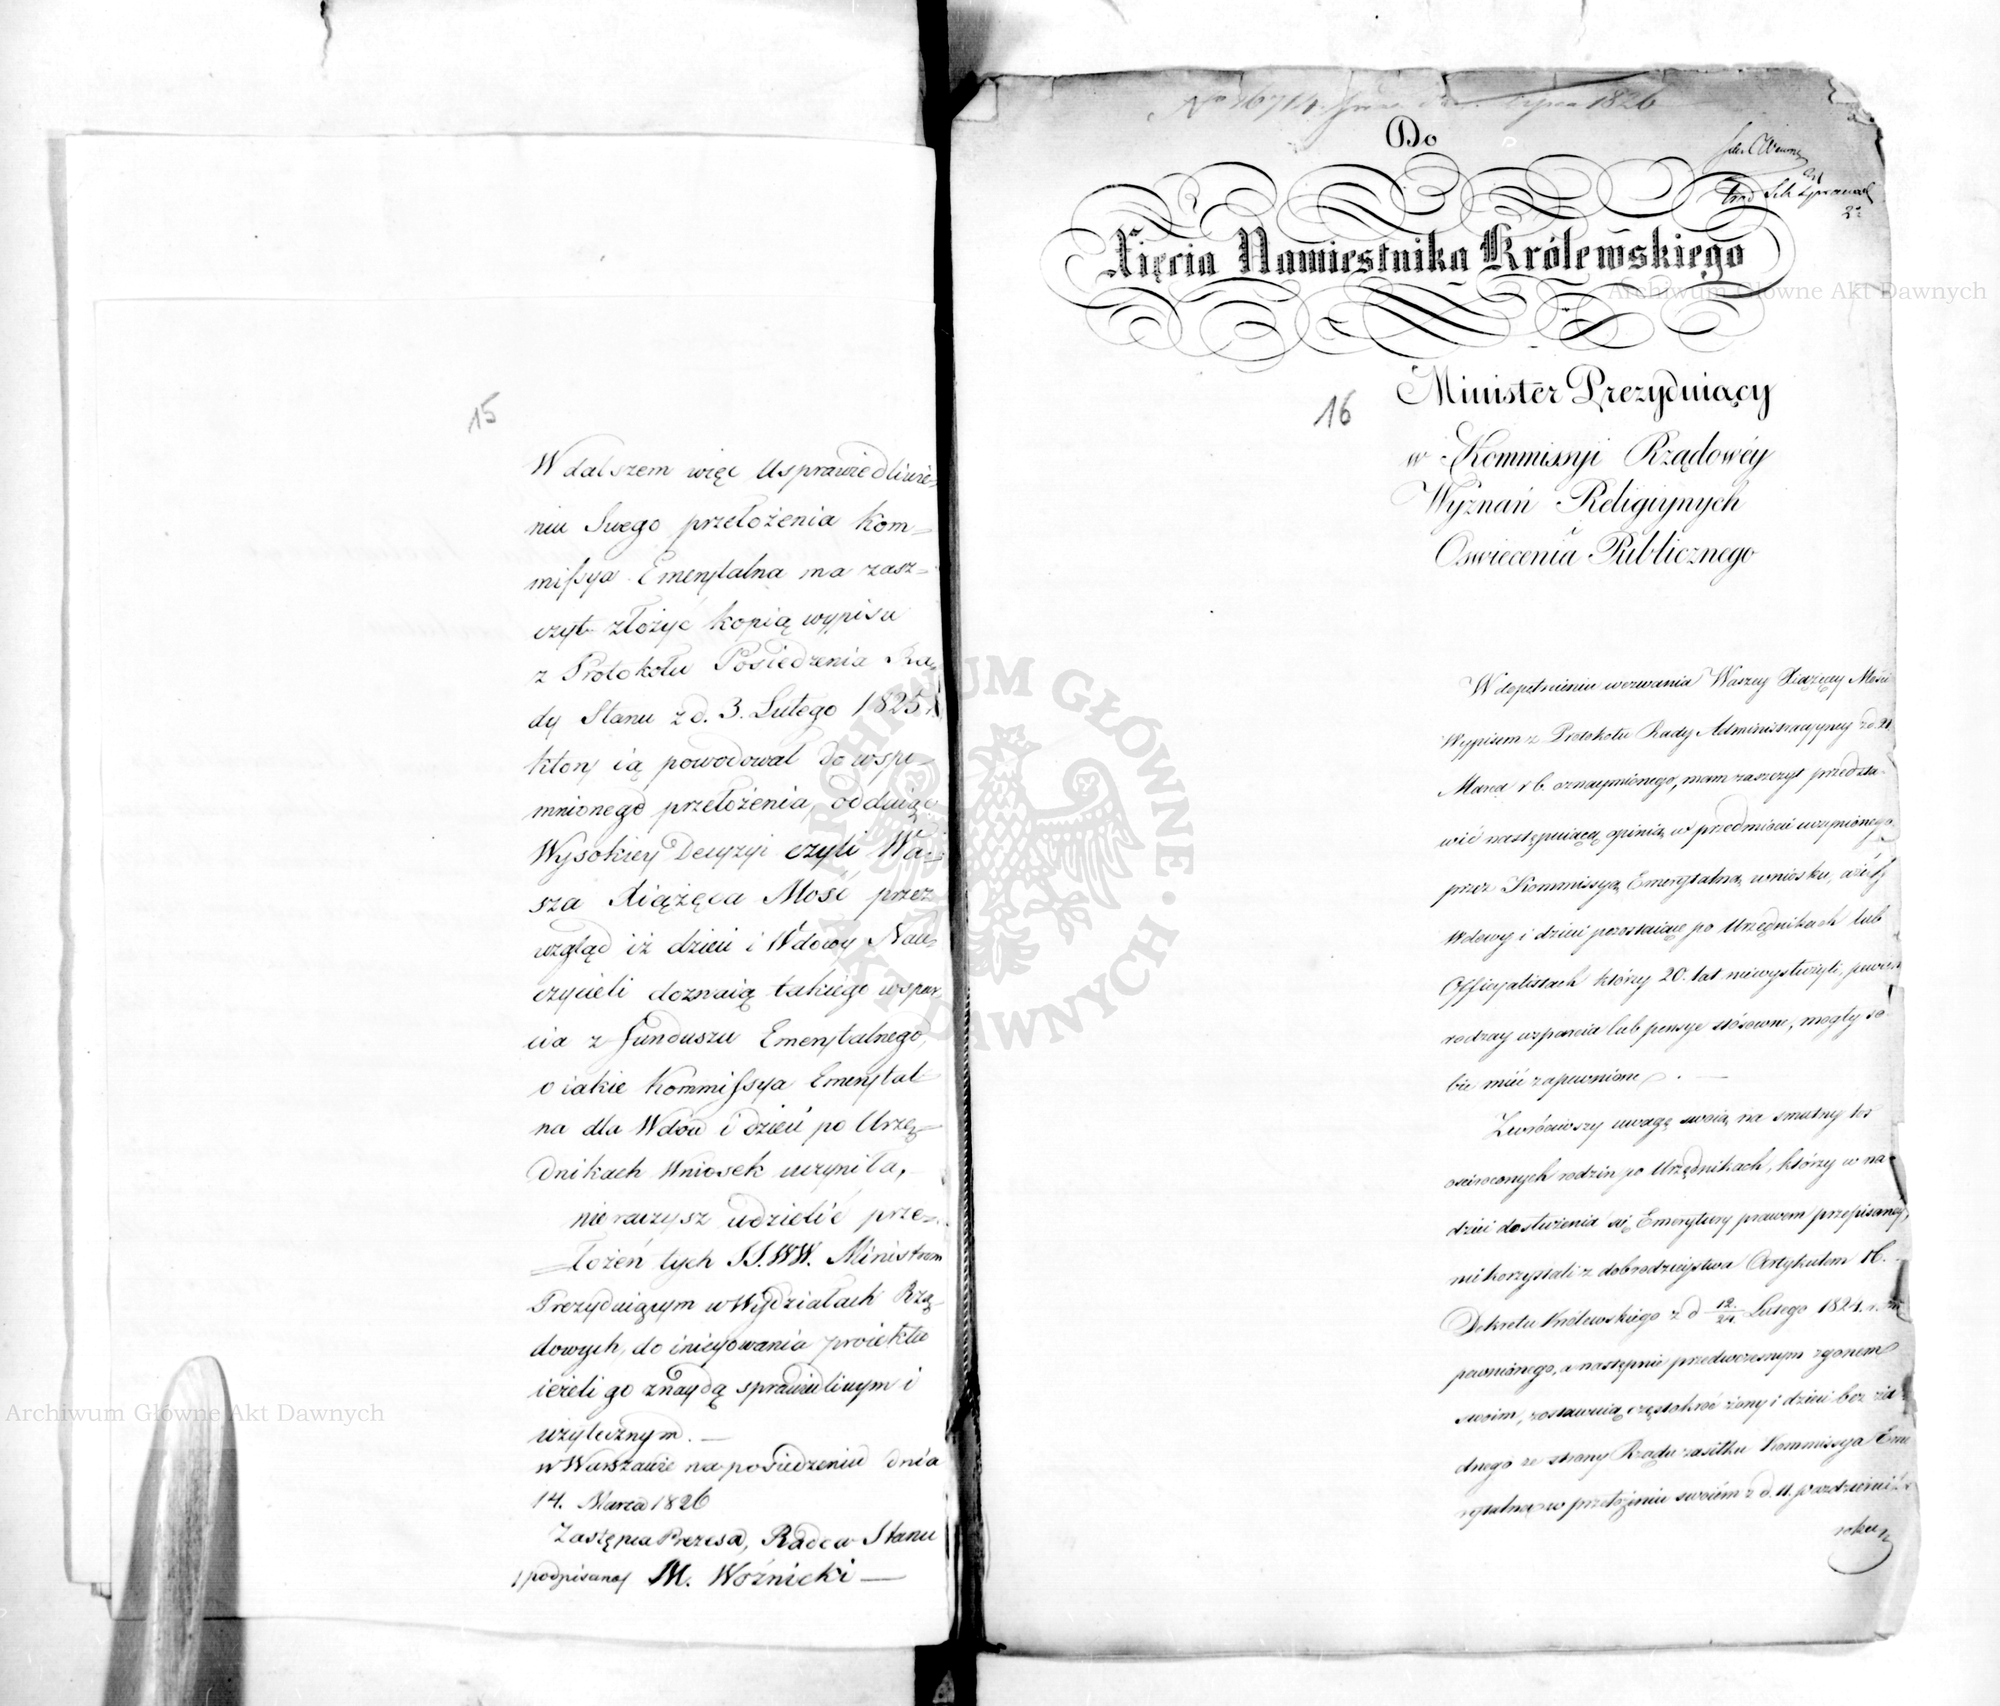 15
W dalszem więc Usprawiedliwie-
niu Swego przełożenia Kom-
missya Emerytalna ma zasz-
czyt złożyć kopią wypisu
z Protokołu Posiedzenia Ra-
dy Stanu z d. 3. Lutego 1825 r.
który ią powodował do wspo-
mnionego przełożenia, oddaiąc
Wysokiey Decyzyi czyli Wa-
sza Xiążęca Mość przez
wzgląd iż dzieci i Wdowy Nau-
czycieli doznaią takiego wspar-
cia z Funduszu Emerytalnego,
o iakie Kommissya Emerytal-
na dla Wdów i dzieci po Urzę-
dnikach Wniosek uczyniła,
nie raczysz udzielić prze-
łożeń tych JJ.WW. Ministrom
Prezyduiącym w Wydziałach Rzą-
dowych, do inicyowania proiektu
ieżeli go znaydą sprawiedliwym i
użytecznym. —
w Warszawie na posiedzeniu dnia
14. Marca 1826
Zastępca Prezesa, Radca Stanu
/podpisano/ M. Woźnicki —
1826
Do
Xięcia Namiestnika Królewskiego
16
Minister Prezyduiący
w Kommissyi Rządowéy
Wyznań Religiynych
i
Oświecenia Publicznego
W dopełnieniu wezwania Waszey Xiążęcey Mości
Wypisem z Protokołu Rady Administracyyney z d. 21
Marca r b. oznaymionego, mam zaszczyt przedsta-
wić następuiącą opinią w przedmiocie uczynionego
przez Kommissyą Emerytalną wniosku, ażeby
Wdowy i dzieci pozostaiące po Urzędnikach lub
Officyalistach którzy 20. lat niewysłużyli, pewien
rodzay wsparcia lub pensye stósowne, mogły so-
bie mieć zapewnione. —
Zwróciwszy uwagę swoią na smutny los
osieroconych rodzin po Urzędnikach, którzy w na-
dziei dosłużenia się Emerytury prawem przepisaney,
nie korzystali z dobrodzieystwa Artykułem 16.
Dekretu Królewskiego z d 12./24. Lutego 1824. r. za-
pewnionego, a następnie przedwczesnym zgonem
swoim, zostawuią częstokroć żony i dzieci bez ża-
dnego ze strony Rządu zasiłku Kommissya Eme-
rytalna w przełożeniu swoiém z d. 11. października
roku
Archiwum Główne Akt Dawnych
Archiwum Główne Akt Dawnych
ARCHIWUM GŁÓWNE AKT DAWNYCH